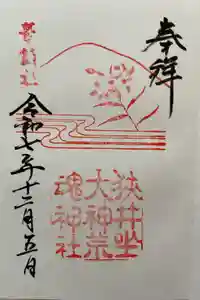 奉拝
狹井坐
大神荒
魂神社
令和七年十二月五日